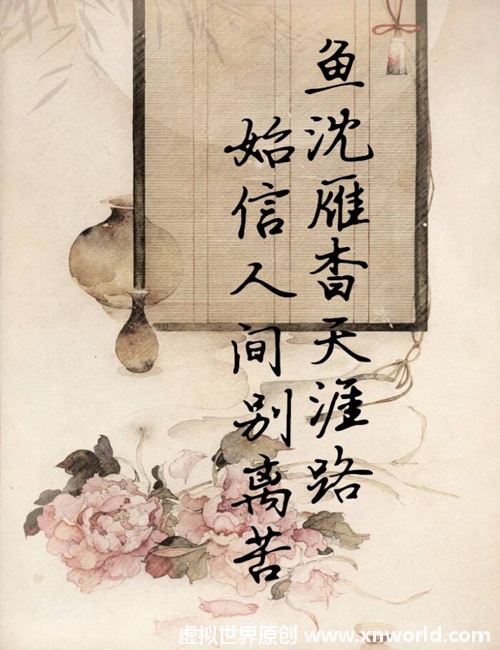 鱼沈雁杳天涯路
始信人间别离苦
虚拟世界原创 www.xnworld.com